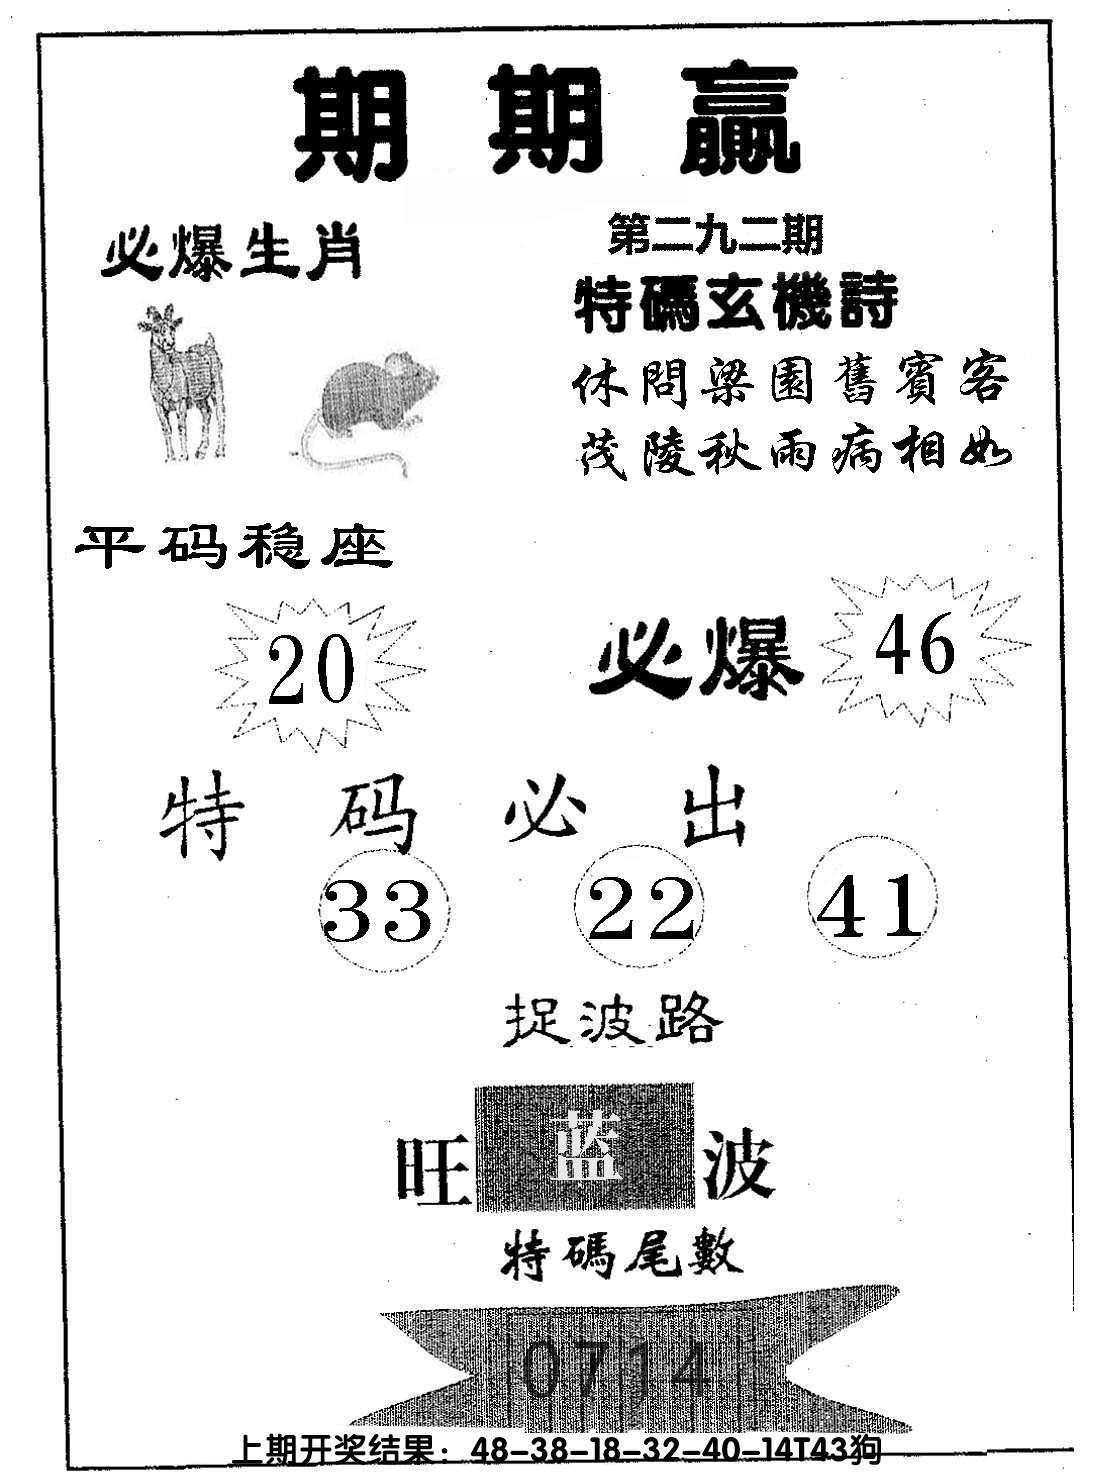 期期贏
必爆生肖
第二九二期
特碼玄機詩
休問梁園舊賓客
茂陵秋雨病相如
平码稳座
20
必爆
46
特码必出
33 22 41
捉波路
旺蓝波
特碼尾數
0714
上期开奖结果：48-38-18-32-40-14T43狗